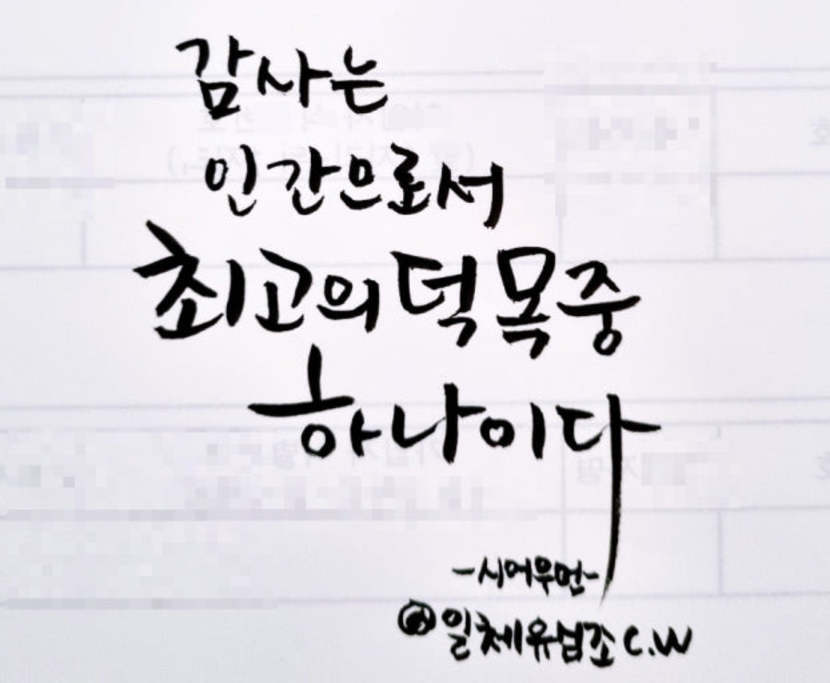 감사는
인간으로서
최고의 덕목중
하나이다
-시어우먼-
@일체유심조 C.W